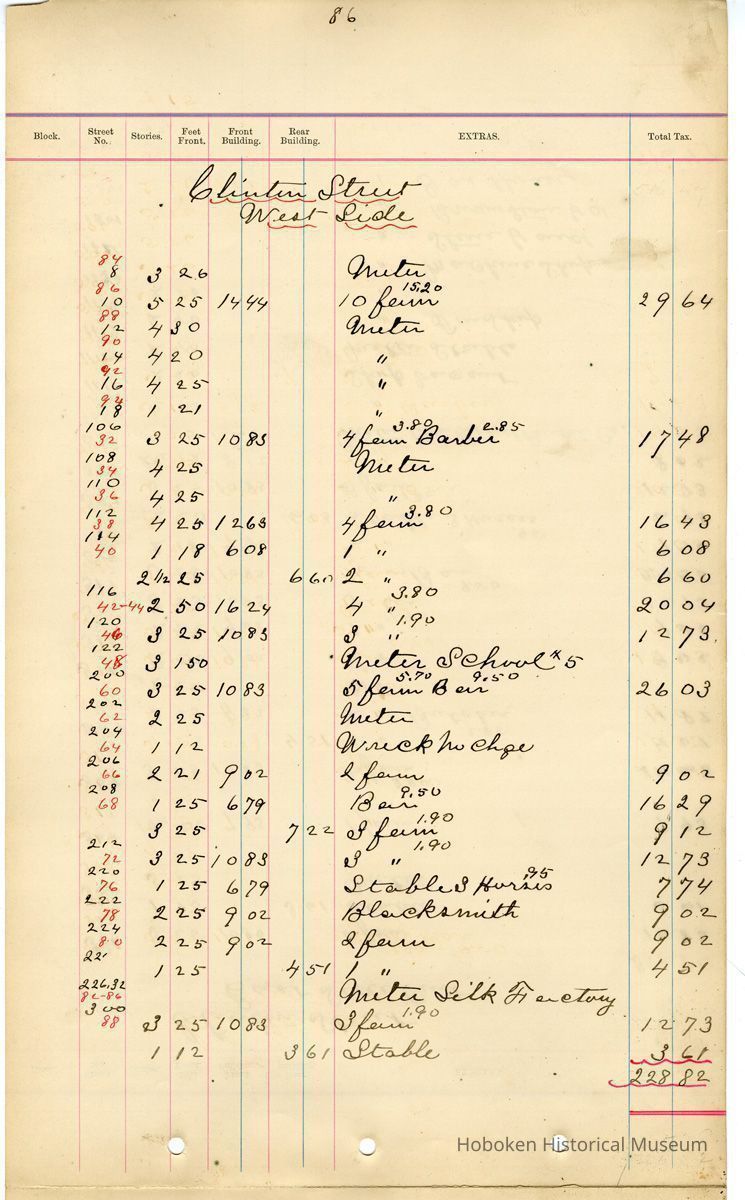 86
Block. Street No. Stories. Feet Front. Front Building. Rear Building. EXTRAS. Total Tax.
Clinton Street
West Side
84
8 3 26 Meter
86 15.20
10 5 25 14 44 10 fam 29 64
88
12 4 30 Meter
90
14 4 20 "
92
16 4 25 "
94
18 1 21 "
106 3.80 2.85
32 3 25 10 83 4 fam Barber 17 48
108
34 4 25 Meter
110
36 4 25 "
112 3.80
38 4 25 12 63 4 fam 16 43
114
40 1 18 6 08 1 " 6 08
2 1/2 25 6 60 2 " 6 60
116 3.80
42-44 2 50 16 24 4 " 20 04
120 1.90
46 3 25 10 83 3 " 12 73
122
48 3 150 Meter School #5
200 5.70 9.50
60 3 25 10 83 5 fam Beer 26 03
202
62 2 25 Meter
204
64 1 12 Wreck No Chge
206
66 2 21 9 02 2 fam 9 02
208 9.50
68 1 25 6 79 Beer 16 29
1.90
3 25 7 22 3 fam 9 12
212 1.90
72 3 25 10 83 3 " 12 73
220 .95
76 1 25 6 79 Stable 3 Horses 7 74
222
78 2 25 9 02 Blacksmith 9 02
224
80 2 25 9 02 2 fam 9 02
1 25 4 51 1 " 4 51
226.32
82-86 Meter Silk Factory
300 1.90
88 3 25 10 83 3 fam 12 73
1 12 3 61 Stable 3 61
228 82
Hoboken Historical Museum